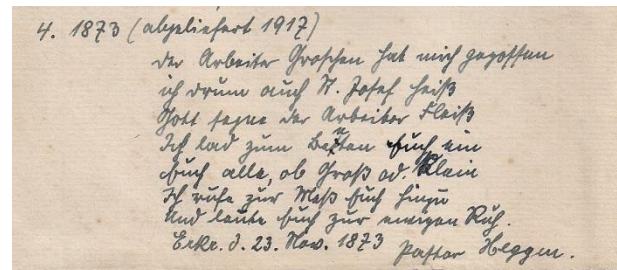 4. 1873 (abgeliefert 1917)
der Arbeiter Groschen hat mich gegossen
ich drum auch St. Josef heiß
Gott segne der Arbeiter Fleiß
Ich lad zum Beten Euch ein
Euch alle, ob Groß od. Klein
Ich rufe zur Meß Euch hinzu
Und leute Euch zur ewigen Ruh.
Erkr. d. 23. Nov. 1873 Pastor Heggen.